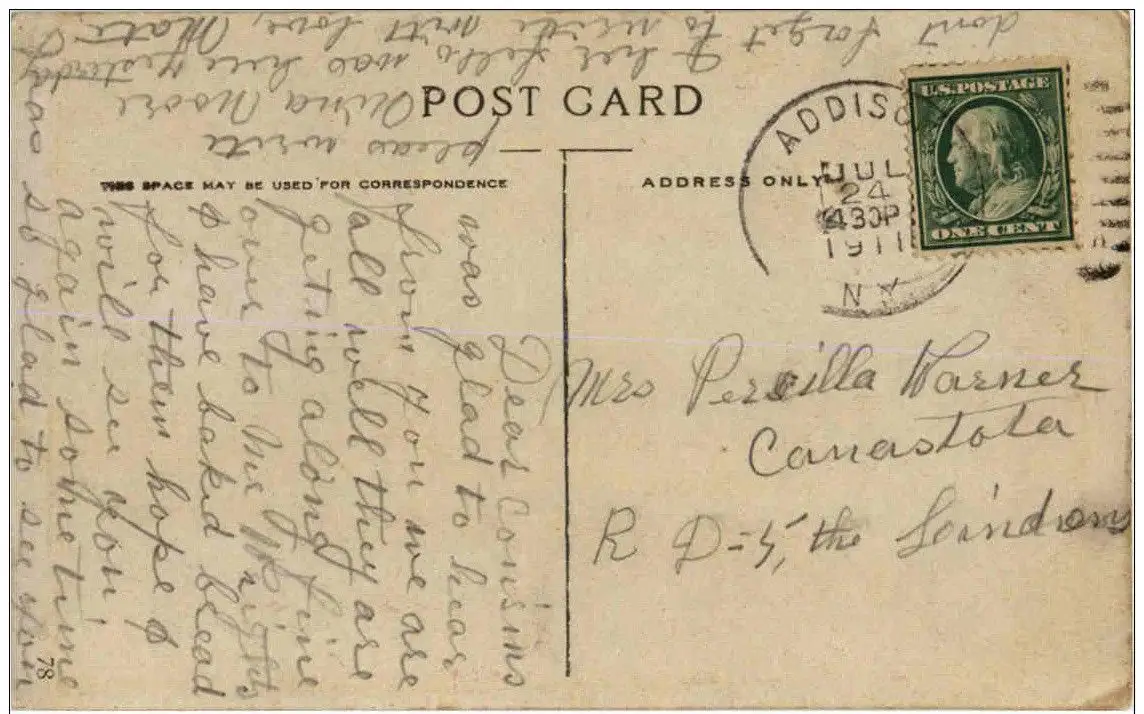 POST CARD
THIS SPACE MAY BE USED FOR CORRESPONDENCE
ADDRESS ONLY
ADDISO
JUL
24
430P
1911
N.Y.
U.S. POSTAGE
ONE CENT
Mrs Percilla Warner
Canastota
R D=5, the
Dear Cousins
was glad to hear
from you we are
all well they are
geting along fine
over to
have baked bread
for them hope
will see you
again some time
so glad to see you
pleas write
Moore
her fello was here yesterday
dont forget to write with love,
78